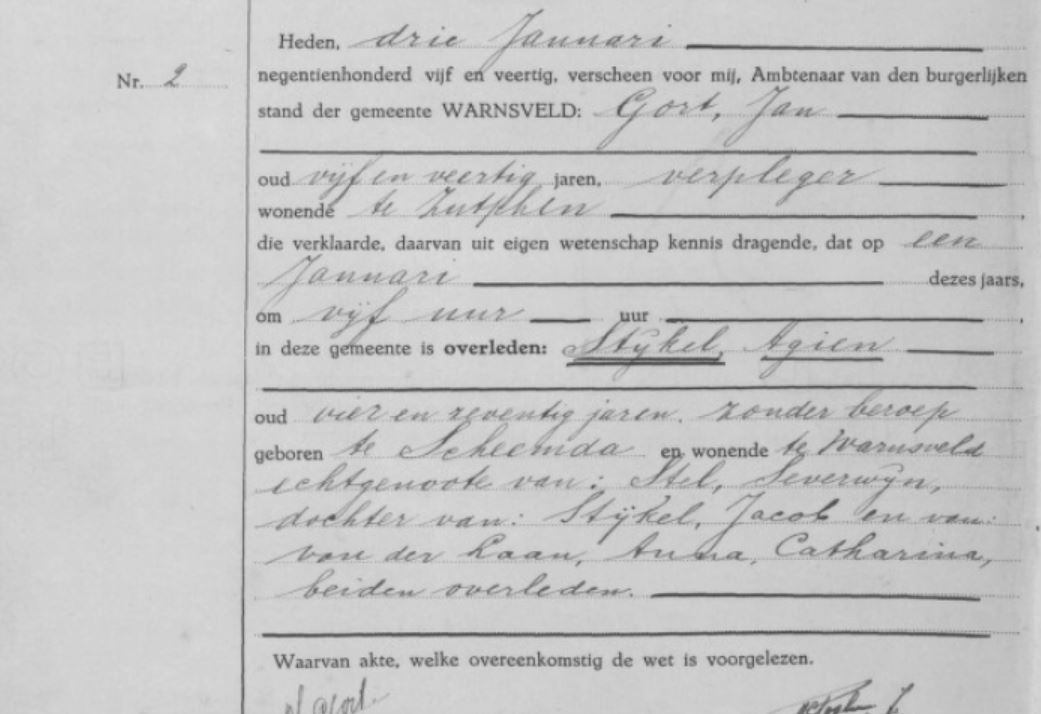 Heden, drie Januari
Nr. 2
negentienhonderd vijf en veertig, verscheen voor mij, Ambtenaar van den burgerlijken
stand der gemeente WARNSVELD: Gort, Jan
oud vijf en veertig jaren, verpleger
wonende te Zutphen
die verklaarde, daarvan uit eigen wetenschap kennis dragende, dat op een
Januari dezes jaars,
om vijf uur uur
in deze gemeente is overleden: Stijkel, Agien
oud vier en zeventig jaren, zonder beroep
geboren te Scheemda en wonende te Warnsveld
echtgenoote van: Stel, Severwijn,
dochter van: Stijkel, Jacob en van:
van der Laan, Anna, Catharina,
beiden overleden.
Waarvan akte, welke overeenkomstig de wet is voorgelezen.
J Gort.